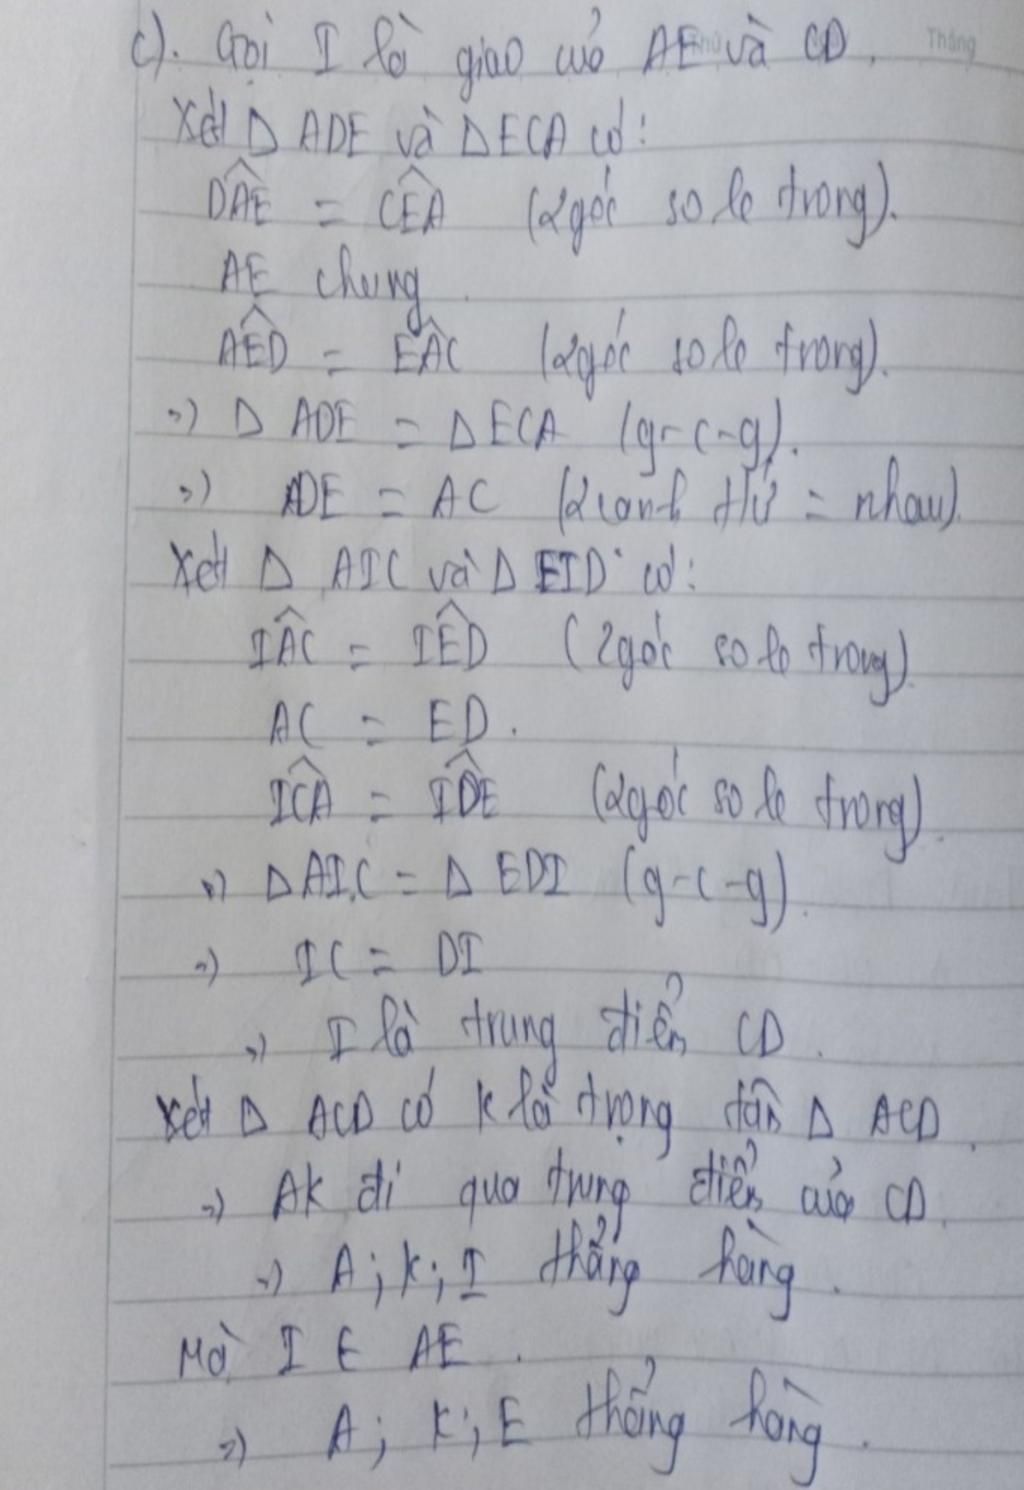 c). Gọi I là giao của AE và CD.
Tháng
Xét Δ ADE và Δ ECA có:
DÂE = CÊA (2 góc so le trong).
AE chung.
AÊD = EÂC (2 góc so le trong).
=) Δ ADE = Δ ECA (g-c-g).
=) DE = AC (2 cạnh t/ứ = nhau)
Xét Δ AIC và Δ EID có:
IÂC = IÊD (2 góc so le trong)
AC = ED.
IĈA = ID̂E (2 góc so le trong).
=) Δ AIC = Δ EDI (g-c-g).
=) IC = DI
=) I là trung điểm CD.
Xét Δ ACD có K là trọng tâm Δ ACD.
=) AK đi qua trung điểm của CD.
=) A; K; I thẳng hàng.
Mà I ∈ AE.
=) A; K; E thẳng hàng.